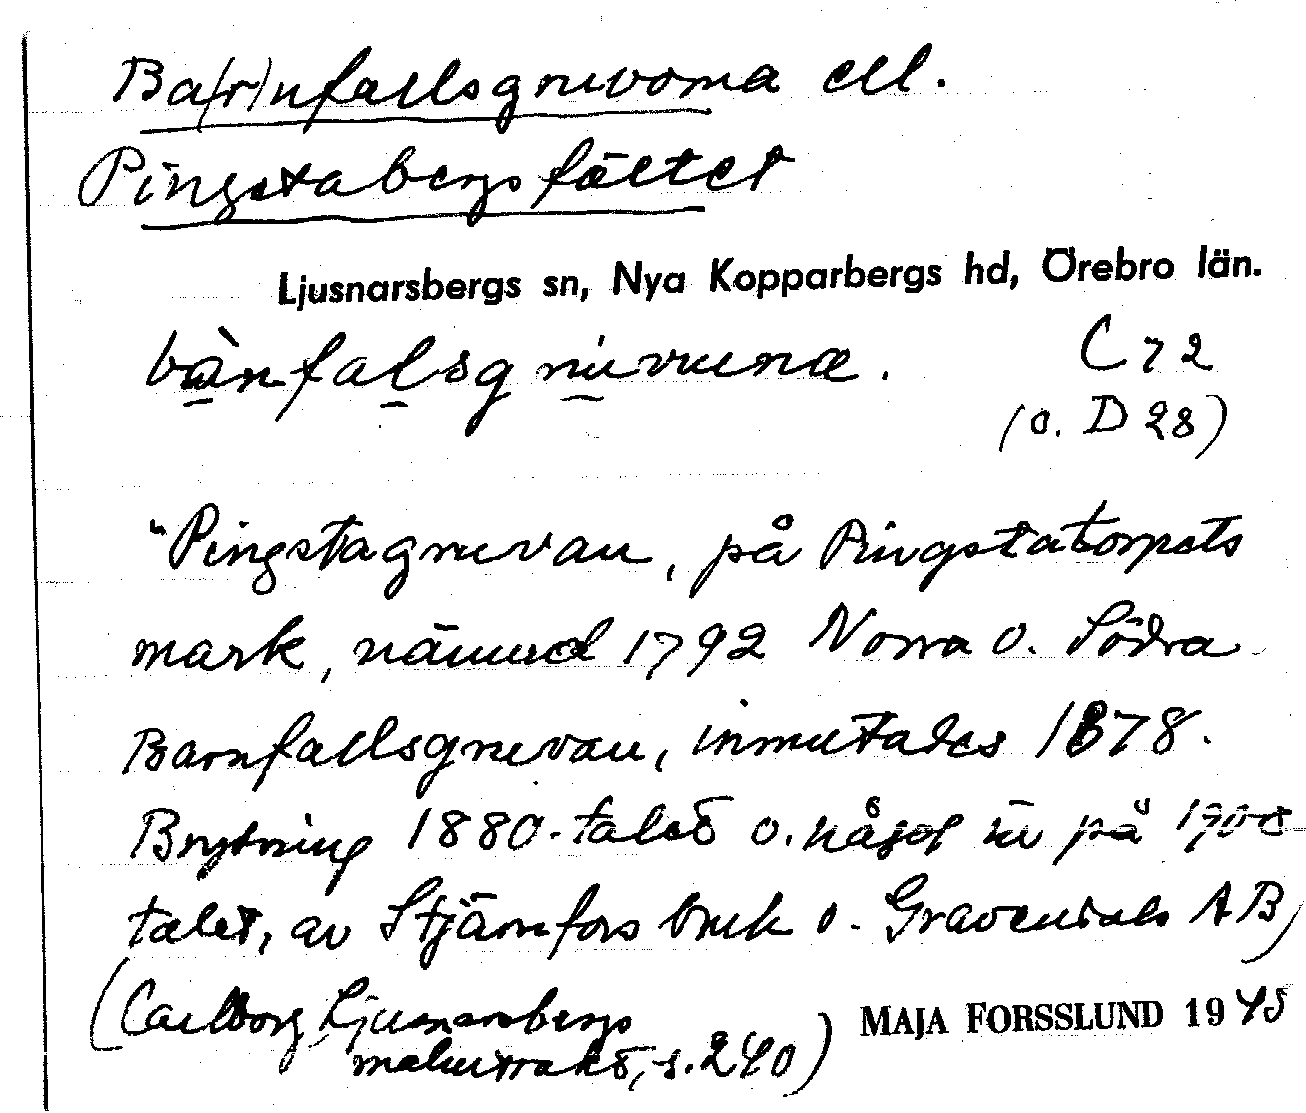 Ba(r)nfallsgruvorna ell.
Pingstabergsfältet
Ljusnarsbergs sn, Nya Kopparbergs hd, Örebro län.
bànfalsgruvuna. C 72
(o. D 28)
"Pingstagruvan, på Pingstatorpets
mark, nämnd 1792 Norra o. Södra
Barnfallsgruvan, inmutades 1878.
Brytning 1880-talet o. något in på 1900-
talet, av Stjärnfors bruk o. Gravendals AB
(Carlborg, Ljusnarsbergs
malmtrakt, s. 240) MAJA FORSSLUND 1945